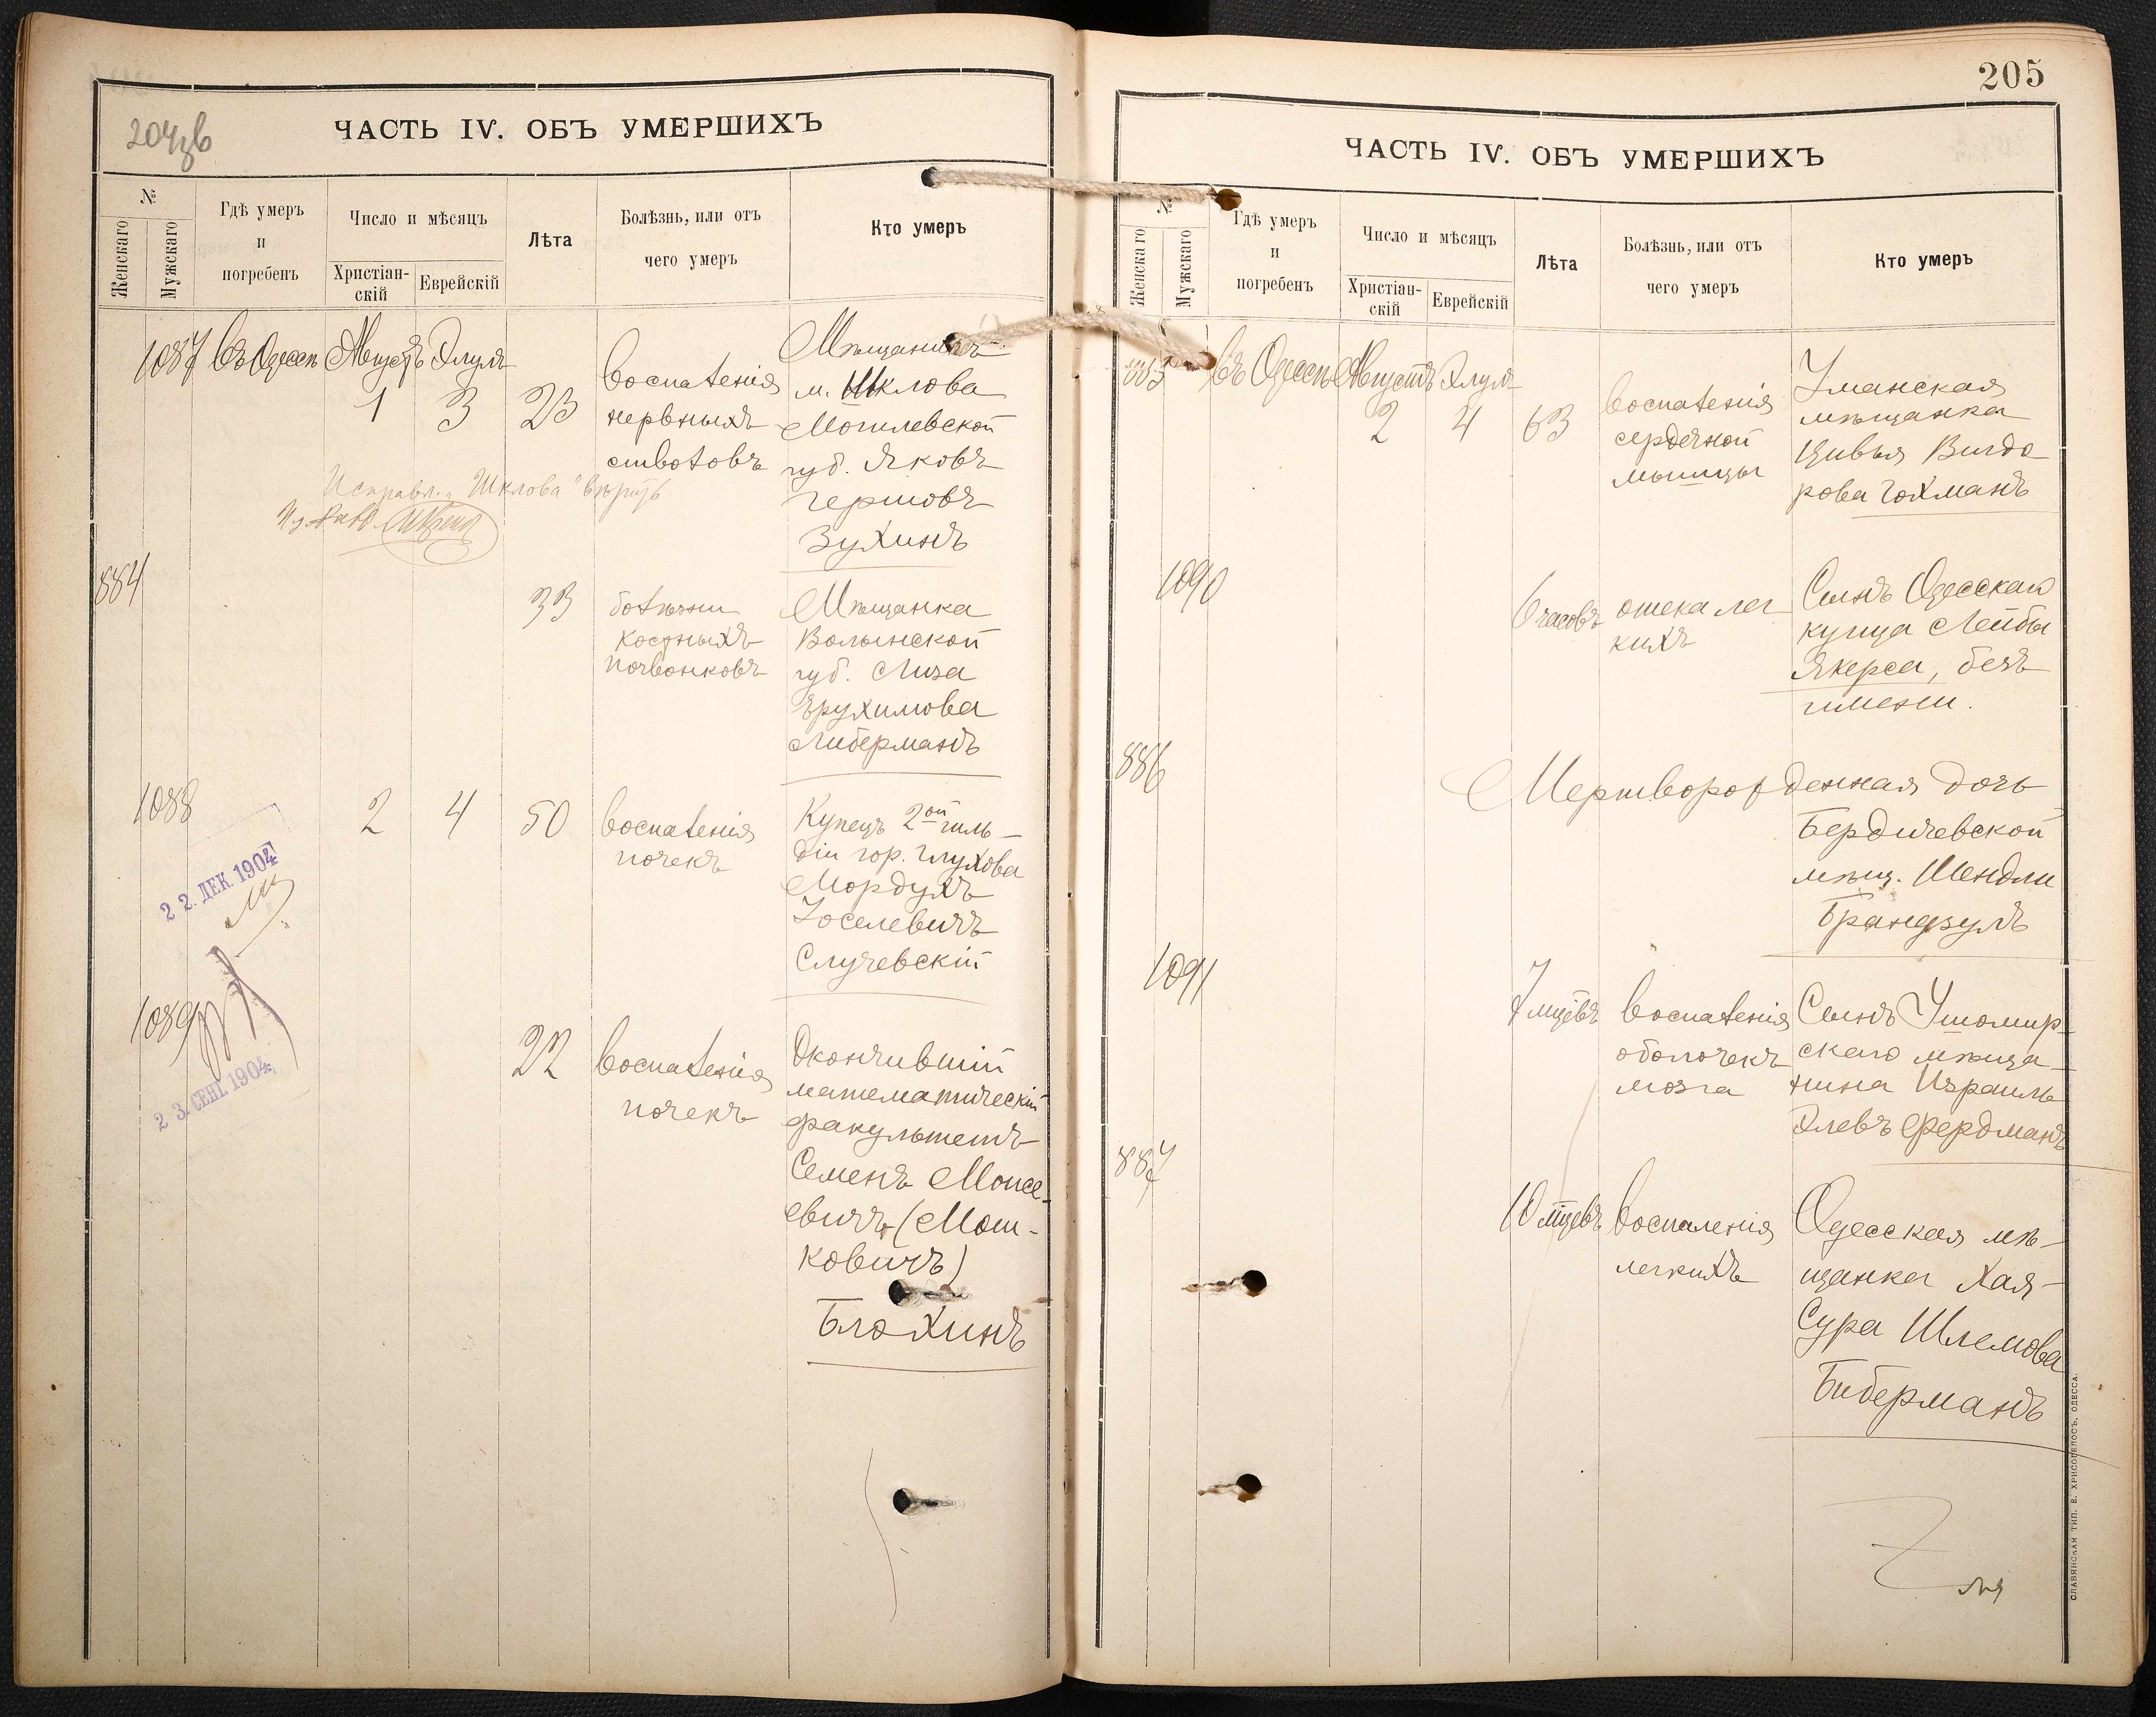 204зв
ЧАСТЬ IV. ОБЪ УМЕРШИХЪ
№
Женскаго
Мужскаго
Гдѣ умеръ
и
погребенъ
Число и мѣсяцъ
Христіан-
скій
Еврейскій
Лѣта
Болѣзнь, или отъ
чего умеръ
Кто умеръ
1087 Въ Одессѣ Августъ Элулъ
1 3 23
воспаленія
нервныхъ
стволовъ
Мѣщанинъ
м. Шклова
Могилевской
губ. Яковъ
Гершовъ
Зухинъ
Исправл. „Шклова" вѣрить.
884
33
болѣзни
костныхъ
позвонковъ
Мѣщанка
Волынской
губ. Лиза
Ерухимова
Либерманъ
1088
2 4 50
воспаленія
почекъ
Купецъ 2ой гиль-
діи гор. Глухова
Мордухъ
Іоселевичъ
Случевскій
22. ДЕК. 1904
1089
22
воспаленія
почекъ
Окончившій
математическій
факультетъ
Семенъ Моисе-
евичъ (Мош-
ковичъ)
Блохинъ
23. СЕНТ. 1904
205
ЧАСТЬ IV. ОБЪ УМЕРШИХЪ
№
Женскаго
Мужскаго
Гдѣ умеръ
и
погребенъ
Число и мѣсяцъ
Христіан-
скій
Еврейскій
Лѣта
Болѣзнь, или отъ
чего умеръ
Кто умеръ
885 Въ Одессѣ Августъ Элулъ
2 4 63
воспаленія
сердечной
мышцы
Уманская
мѣщанка
Цивья Вигдо
рова Гохманъ
1090
6 часовъ
отека лег
кихъ
Сынъ Одесскаго
купца Лейбы
Якерса, безъ
имени.
886
Мертворожденная дочь
Бердичевской
мѣщ. Шендли
Брандзулъ
1091
7 мцевъ
воспаленія
оболочекъ
мозга
Сынъ Ушомир-
скаго мѣща-
нина Израиль
Элевъ Фердманъ
887
10 мцевъ
воспаленія
легкихъ
Одесская мѣ-
щанка Хая-
Сура Шлемова
Биберманъ
СЛАВЯНСКАЯ ТИП. Е. ХРИСОГЕЛОСЪ, ОДЕССА.